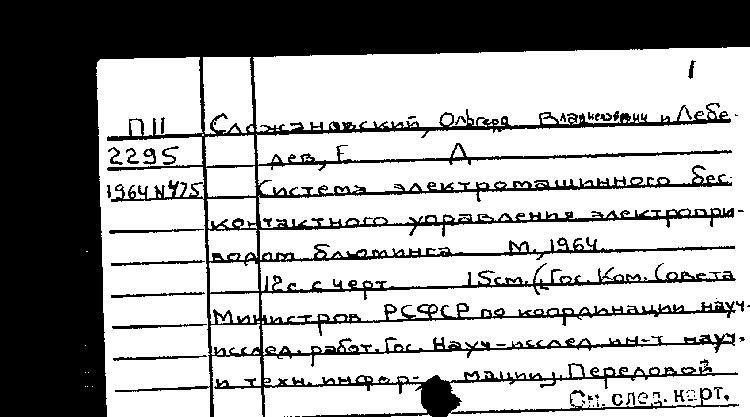 1
П11 Слежановский, Ольгерд Владиславович и Лебе-
2295 дев, Е. Д
1964 №475 Система электромашинного бес-
контактного управления электропри-
водом блюминга. М., 1964.
12 с. с черт. 15см. (Гос. Ком. Совета
Министров РСФСР по координации науч-
исслед. работ. Гос. Науч-исслед. ин-т науч.
и техн. информации). Передовой
См. след. карт.